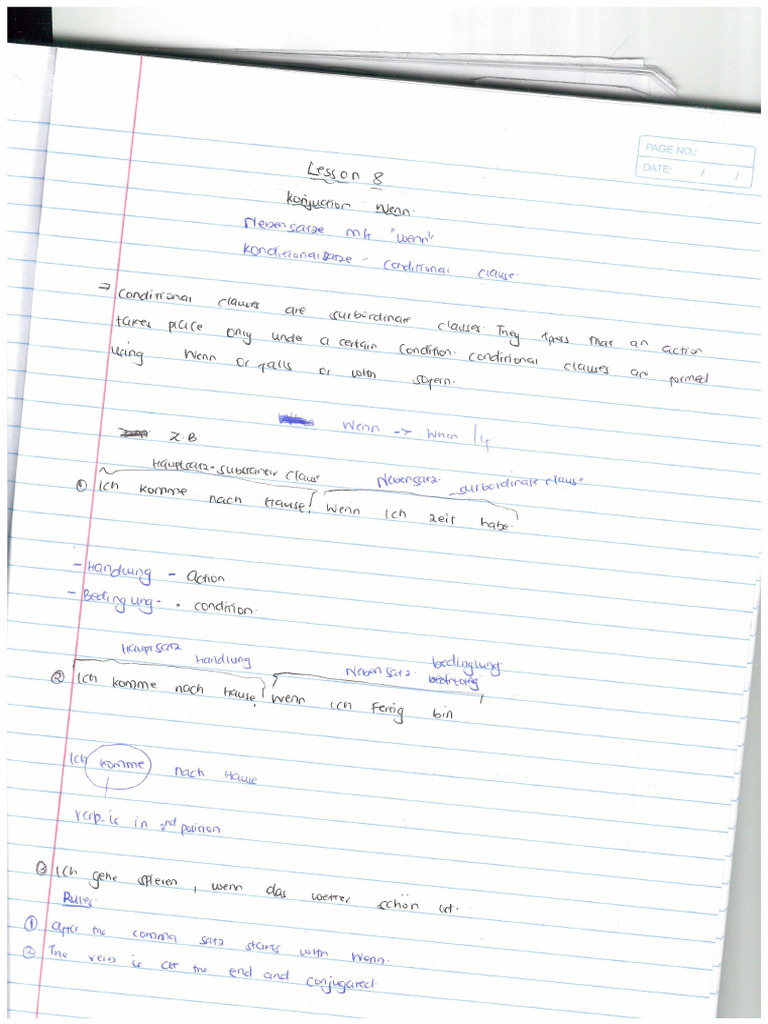 PAGE NO.:
DATE: / /
Lesson 8
Konjuction Wenn.
Nebensatze mit "wenn".
Konditionalsatze - conditional clause.
→ Conditional clauses are surbordinate clauses. They xpress that an action
takes place only under a certain condition. Conditional clauses are formed
using Wenn or falls or with sofern.
Wenn -> When / if
Z.B
Hauptsatz - substantiv claus Nebensatz - surbordinate claus
① Ich komme nach Hause, Wenn ich zeit habe.
- Handlung - action
- Bedingung - condition.
Hauptsatz Handlung Nebensatz bedingung
② Ich komme nach Hause, Wenn ich fertig bin
Ich komme nach Hause
verb is in 2nd position
③ Ich gehe spielen, wenn das wetter schön ist.
Rules
① After the comma satz starts with Wenn.
② The verb is at the end and conjugated.